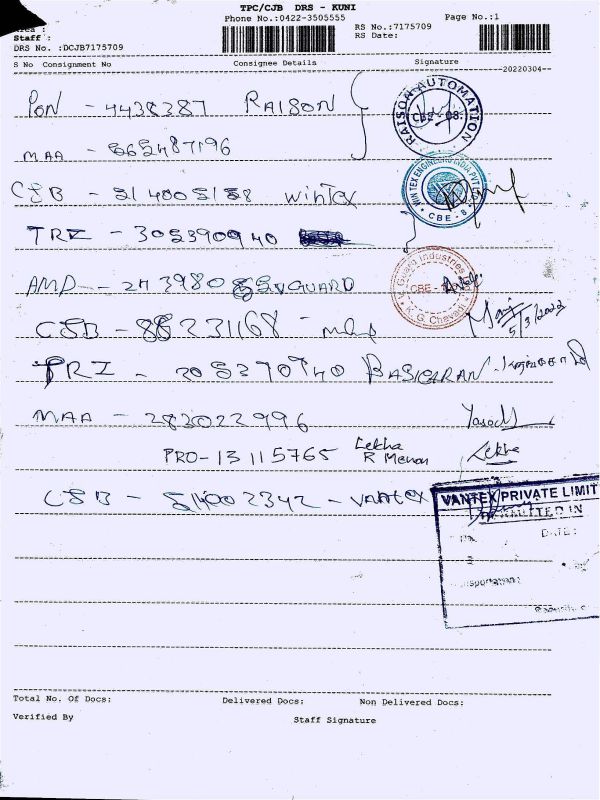 TPC/CJB DRS - KUNI
Phone No.:0422-3505555
Page No.:1
Area :
Staff :
RS No.:7175709
RS Date:
DRS No. :DCJB7175709
S No Consignment No Consignee Details Signature
20220304
PON - 4438387 RAISON
RAISON AUTOMATION
CBE - 08.
MAA -
CSB - Wintex
WIN TEX ENGINEERS INDIA PVT
CBE - 8
TRI - 305390940
AMD - 273980 VGUARD
V Guard Industries
CBE
K.G. Chavadi
CSB - 88231168 -
5/3/2022
TRI - 305370940 BASKARAN
MAA - 283022996
PRO - 13115765 Lekha
R Menon
Lekha
CSB - 514002342 - Vantex
VANTEX PRIVATE LIMIT
DATE:
Total No. Of Docs: Delivered Docs: Non Delivered Docs:
Verified By Staff Signature